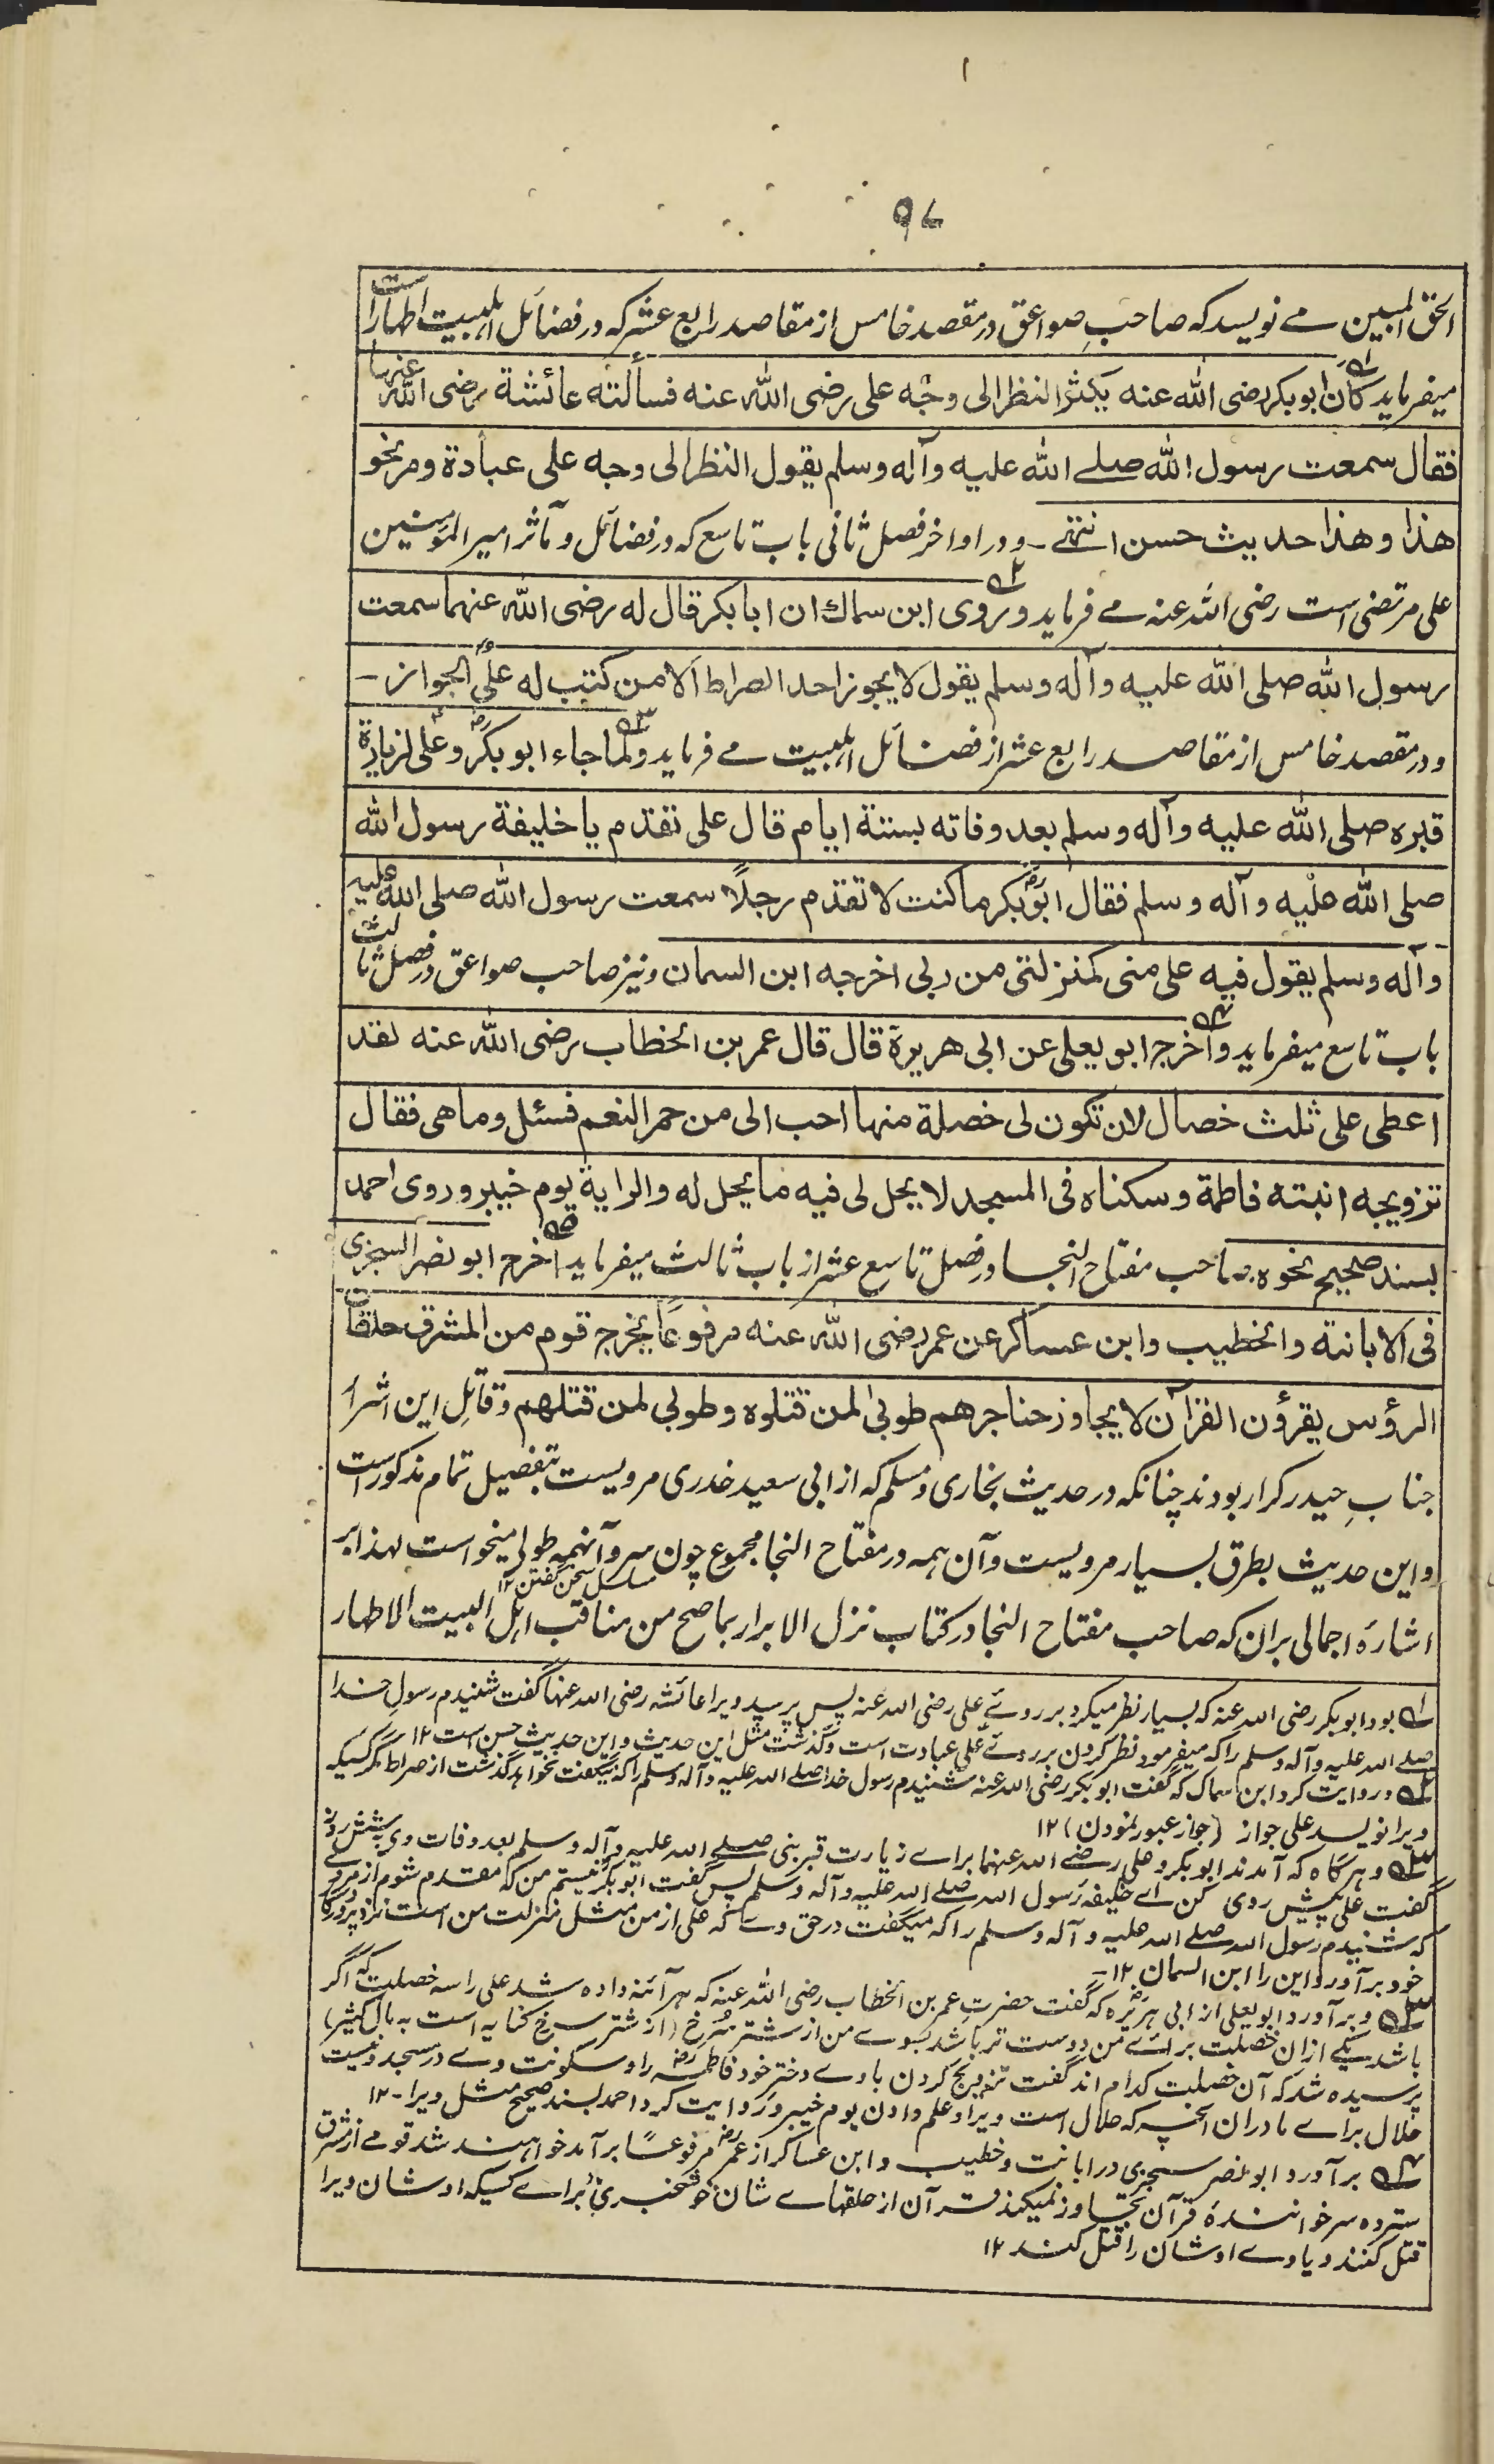 ۹۷
الحق المبین مے نویسد کہ صاحبِ صواعق در مقصد خامس از مقاصد رابع عشر کہ در فضائل اہلبیت اطہار است
میفرماید کان ابوبکر رضی اللہ عنه یکثر النظر الی وجه علی رضی اللہ عنه فسألته عائشة رضی اللہ عنہا
فقال سمعت رسول اللہ صلے اللہ علیه وآله وسلم یقول النظر الی وجه علی عبادة ومر نحو
هذا وهذا حدیث حسن انتہے ـ و در اواخر فصل ثانی باب تاسع کہ در فضائل و مآثر امیر المؤمنین
علی مرتضی است رضی اللہ عنہ مے فرماید و روی ابن سماك ان ابا بكر قال له رضی اللہ عنهما سمعت
رسول اللہ صلی اللہ علیه وآله وسلم یقول لا یجوز احد الصراط الا من کتب له علی الجواز ـ
و در مقصد خامس از مقاصد رابع عشر از فضائل اہلبیت مے فرماید ولما جاء ابوبکر وعلی لزیارة
قبره صلی اللہ علیه وآله وسلم بعد وفاته بستة ایام قال علی تقدم یا خلیفة رسول اللہ
صلی اللہ علیه وآله وسلم فقال ابوبکر ما کنت لا تقدم رجلًا سمعت رسول اللہ صلی اللہ علیه
وآله وسلم یقول فیه علی منی کمنزلتی من ربی اخرجه ابن السمان و نیز صاحب صواعق در فصل ثالث
باب تاسع میفرماید و اخرج ابو یعلی عن ابی هریرة قال قال عمر بن الخطاب رضی اللہ عنه لقد
اعطی علی ثلث خصال لان تکون لی خصلة منها احب الی من حمر النعم فسئل وما هی فقال
تزویجه ابنته فاطمة وسکناه فی المسجد لا یحل لی فیه ما یحل له والرایة یوم خیبر وروی احمد
بسند صحیح نحوه ـ صاحب مفتاح النجا در فصل تاسع عشر از باب ثالث میفرماید اخرج ابو نصر السجزی
فی الابانة والخطیب وابن عساکر عن عمر رضی اللہ عنه مرفوعًا یخرج قوم من المشرق حلقات
الرؤس یقرؤن القرآن لا یجاوز حناجرهم طوبیٰ لمن قتلوه وطوبی لمن قتلهم و قاتلِ این اشرار
جنابِ حیدر کرار بودند چنانکہ در حدیث بخاری و مسلم کہ از ابی سعید خدری مرویست بتفصیل تمام مذکور است
و این حدیث بطرق بسیار مرویست و آن ہمہ در مفتاح النجا مجموع چون سرد آنہمہ طولے میخواست لہذا بر
مسلسل سخن گفتن ۱۲
اشارۂ اجمالی بران کہ صاحب مفتاح النجا در کتاب نزل الابرار بما صح من مناقب اہل البیت الاطہار
۱ بود ابوبکر رضی اللہ عنہ کہ بسیار نظر میکرد بر روئے علی رضی اللہ عنہ پس پرسید ویرا عائشہ رضی اللہ عنہا گفت شنیدم رسولِ خدا
صلے اللہ علیہ وآلہ وسلم را کہ میفرمود نظر کردن بر روئے علی عبادت است و گذشت مثل این حدیث و این حدیث حسن است ۱۲
۲ و روایت کرد ابن سماک کہ گفت ابوبکر رضی اللہ عنہ شنیدم رسول خدا صلے اللہ علیہ وآلہ وسلم را کہ میگفت نخواہد گذشت از صراط مگر کسیکہ
ویرا نویسد علی جواز (جواز عبور نمودن) ۱۲
۳ و ہرگاہ کہ آمدند ابوبکر و علی رضے اللہ عنہما برائے زیارت قبر نبی صلے اللہ علیہ وآلہ وسلم بعد وفات وی بشش روز
گفت علی پیش روی کن اے خلیفہ رسول اللہ صلے اللہ علیہ وآلہ وسلم پس گفت ابوبکر نیستم من کہ مقدم شوم از مردے
کہ شنیدم رسول اللہ صلے اللہ علیہ وآلہ وسلم را کہ میگفت در حق وے کہ علی از من مثل منزلت من است نزد پروردگار
خود برآورد این را ابن السمان ۱۲ ـ
۴ و برآورد ابو یعلی از ابی ہریرہ کہ گفت حضرت عمر بن الخطاب رضی اللہ عنہ کہ ہر آئنہ دادہ شد علی را سہ خصلت کہ اگر
باشد یکے ازان خصلت برائے من دوست تر باشد بسوے من از شتر سُرخ (از شتر سرخ کنایہ است بہ مال کثیر)
پرسیدہ شد کہ آن خصلت کدام اند گفت تزویج کردن باوے دختر خود فاطمہ را و سکونت وے در مسجد و نیست
حلال برائے ما دران آنچہ کہ حلال است ویرا و علم دادن یوم خیبر و روایت کرد احمد بسند صحیح مثل ویرا ـ ۱۲
۵ برآورد ابو نصر سجزی در ابانت و خطیب و ابن عساکر از عمر مرفوعًا برآمد خواہند شد قومے از مشرق
ستردہ سر خوانندہ قرآن تجاوز نمیکند قرآن از حلقہاے شان خوشخبری برائے کسیکہ اوشان ویرا
قتل کنند و یا وے اوشان را قتل کند ۱۲